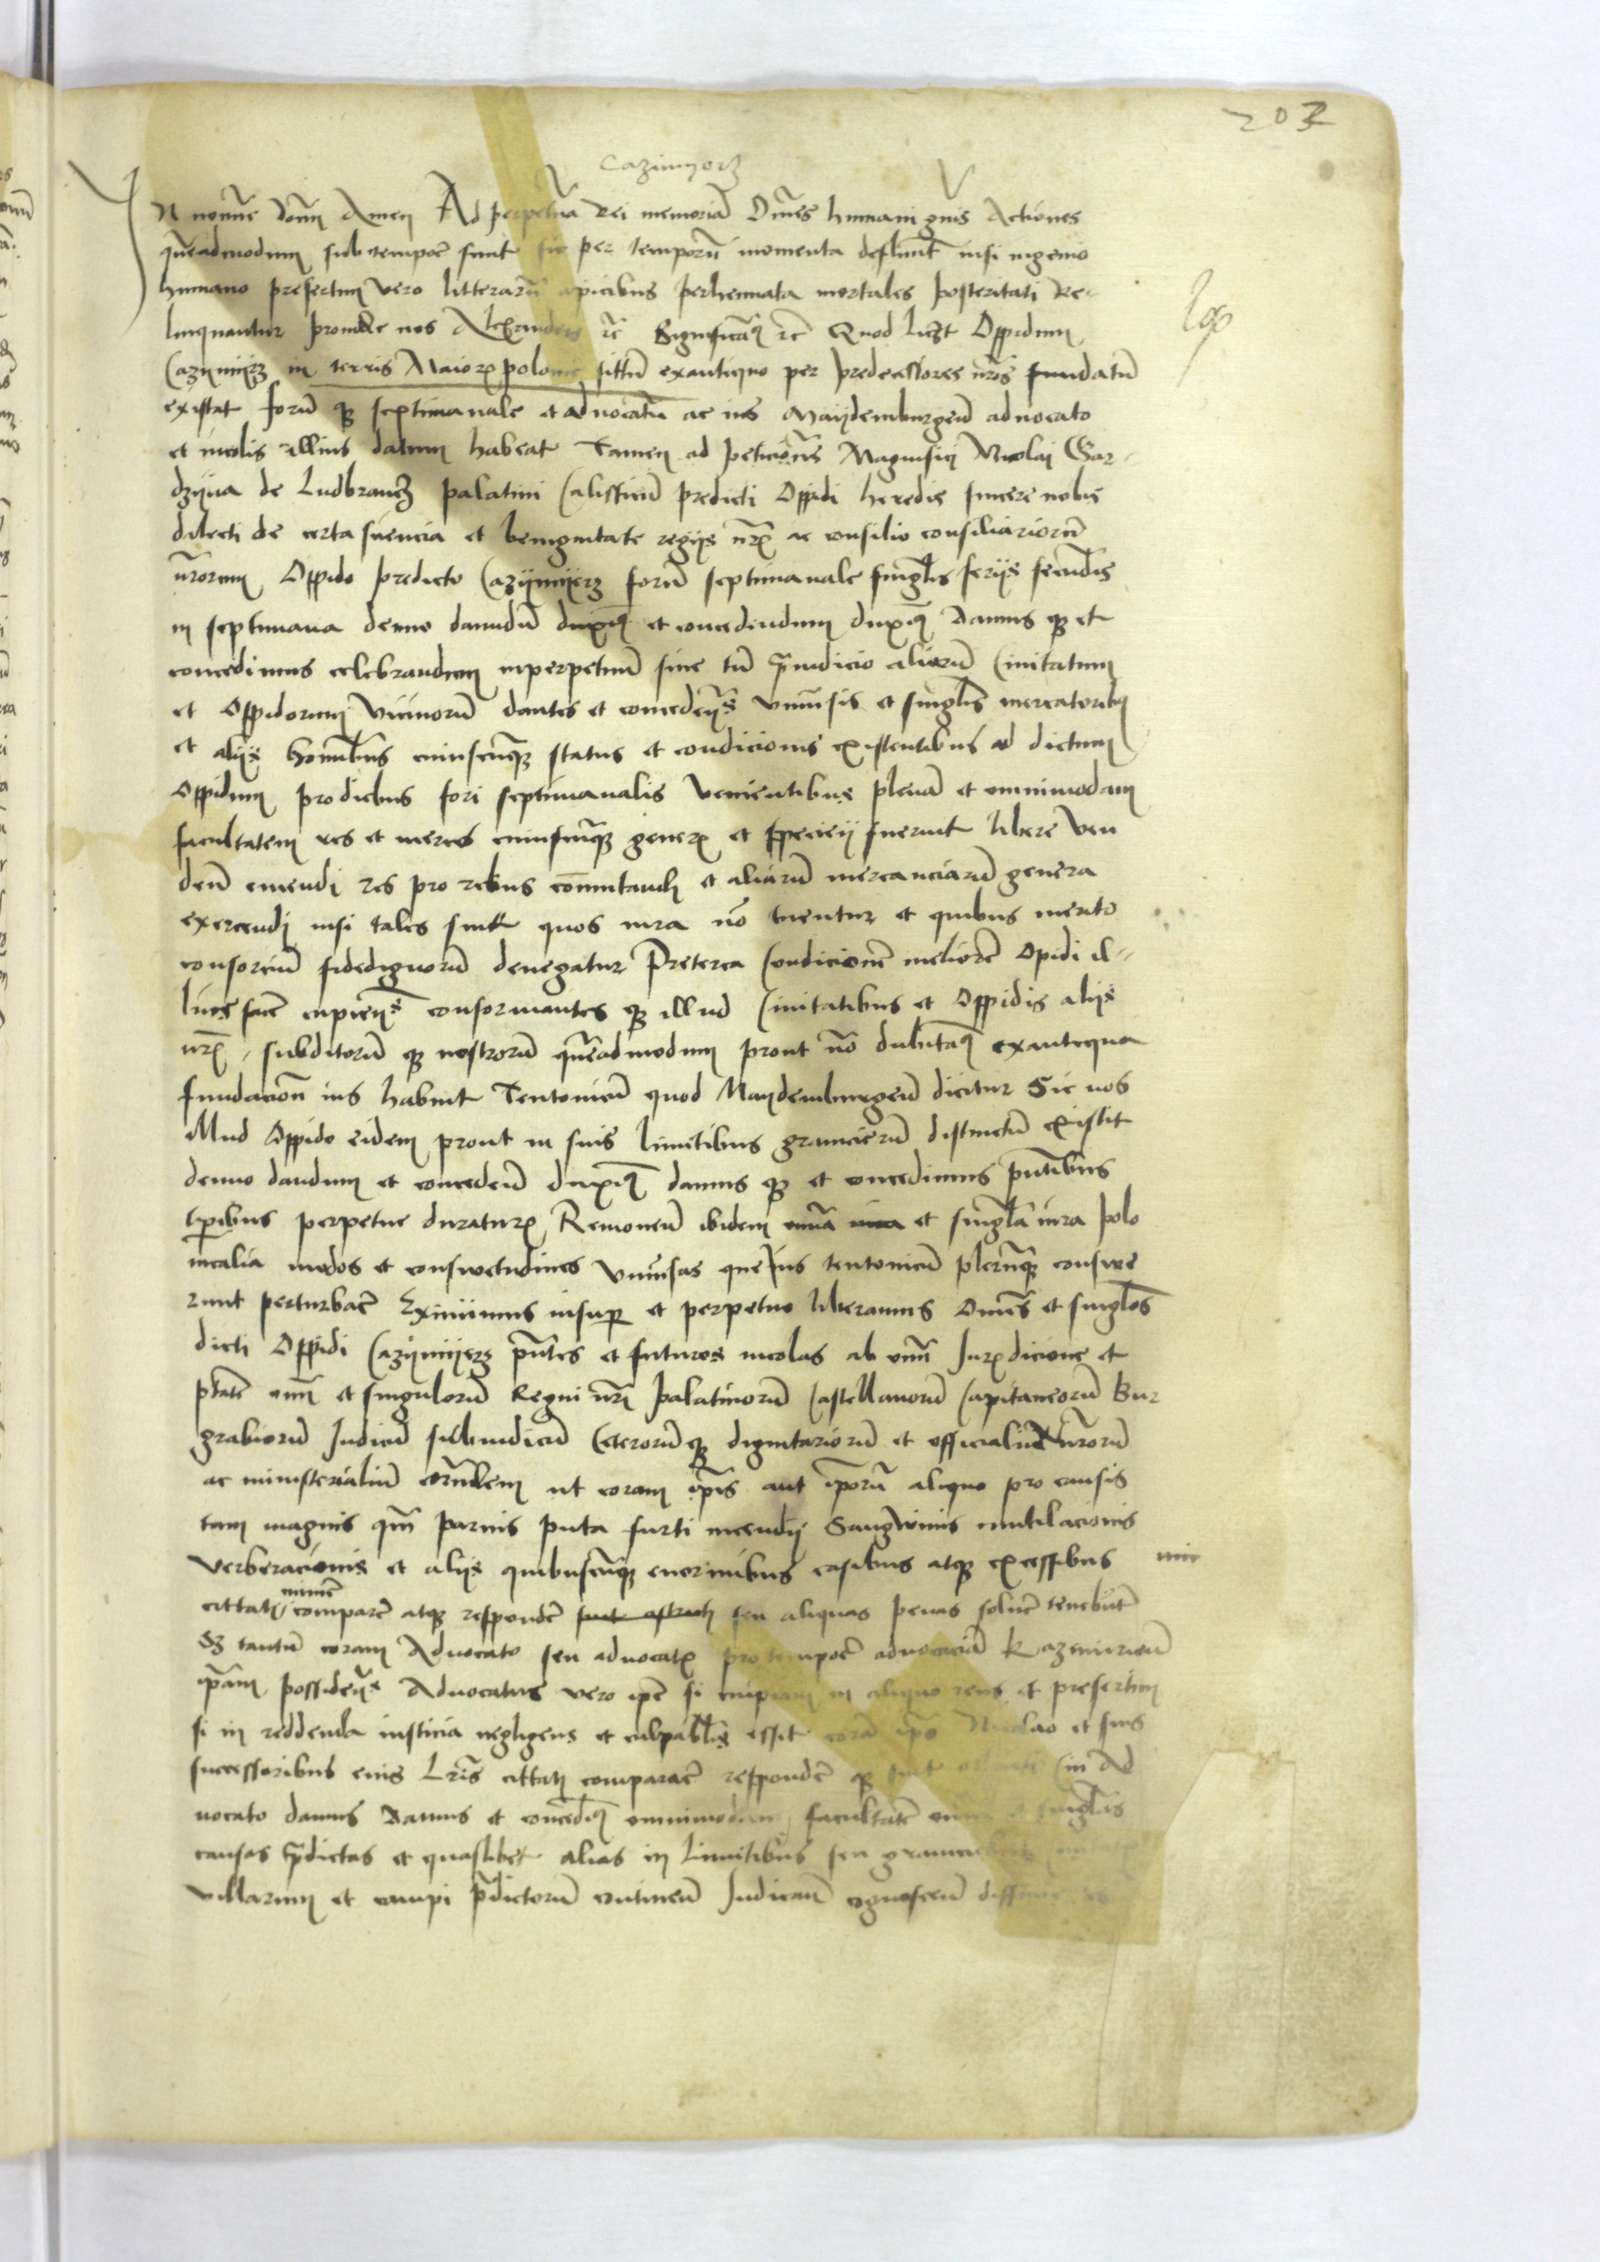 203
Cazimyerz
IN nomine domini Amen Ad perpetuam Rei memoriam Omnes humani gnis Actiones
quēadmodum sub tempore sunt sic per temporū momenta defluunt nisi ingenio
humano presertim vero litterarū apicibus perhennata mortales posteritati Re-
linquantur proinde nos Alexander rc Significamꝰ rc Quod licet Oppidum
Cazymijrz in terris Maioris polonie sittū exantiquo per predecessores nros fundatū
existat forū qꝫ septimanale et advocatū ac ius Maydemburgeñ advocato
et incolis illius datum habeat Tamen ad peticiones Magnifici Nicolai Gar-
dzyna de Ludbrancz palatini Calissieñ predicti Oppidi heredis sincere nobis
dilecti de certa sciencia et benignitate regijs nris ac consilio consiliariorū
nrorum Oppido predicto Cazijmijerz forū septimanale singlis ferijs secundis
in septimana denuo dandū duximꝰ et concedendum duximꝰ damus qꝫ et
concedimus celebrandum inperpetuū sine tn preiudicio aliorū Civitatum
et Oppidorum vicinorū dantes et concedentes universis et singlis mercatoribꝰ
et alijs hominibus cuiuscunqꝫ status et condicionis existentibus ad dictum
Oppidum pro diebus fori septimanalis venientibus plenā et omnimodam
facultatem res et merces cuiuscunqꝫ generis et speciei fuerint libere ven
dendi emendi res pro rebus commutandi et aliarū mercanciarū genera
exercendi nisi tales sint quos iura nō tuentur et quibus merito
consorciū fidedignorū denegatur Preterea Condicionē meliorē Opidi il-
lius facere cupientes conformantes qꝫ illud Civitatibus et Oppidis alijs
nris subditorū qꝫ nostrorū quēadmodum prout nō dubitamꝰ exantiqua
fundacione ius habuit Teutonicū quod Maydemburgeñ dicitur Sic nos
illud Oppido eidem prout in suis limitibus granicierū distinctū existit
denuo dandum et concedeñ duximꝰ damus qꝫ et concedimus presentibus
tpribus perpetue duraturis Removeñ ibidem omnia et singula iura polo
nicalia modos et conswetudines universas que Ius teutonicū plerunqꝫ conswe
runt perturbare Eximimus insuper et perpetuo liberamus Omnes et singlos
dicti Oppidi Cazijmijerz pntes et futuros incolas ab omni Iurisdicione et
ptate omi et singulorū Regni nri palatinorū Castellanorū Capitaneorū Bur
grabiorū Iudicū subiudicū Ceterorūqꝫ dignitariorū et officialiū nrorū
ac ministerialiū eorundem ut coram ipis aut iporū aliquo pro causis
tam magnis qm parvis puta furti incendij Sangwinis mutilacionis
verberacionis et alijs quibuscunqꝫ enormibus casibus atqꝫ excessibus
cittati minime comparere atqꝫ respondere sint astricti seu aliquas penas solvere tenebūt
Sꝫ tantū coram Advocato seu advocatis pro tempore advocaciā Kazmiriensem
ipam possidentes Advocatus vero ipe si cuipiam in aliquo reus et presertim
si in reddenda iusticia negligens et culpabilis esset corā ipo Nicolao et suis
successoribus eius Lris cittati comparere respondere qꝫ sint astricti Cui Ad
vocato damus damus et concedimꝰ omnimodam facultatē omnes et singlis
causas predictas et quaslibet alias in limitibus seu
villarum et campi predictorū contineñ Iudicandi cognoscendi